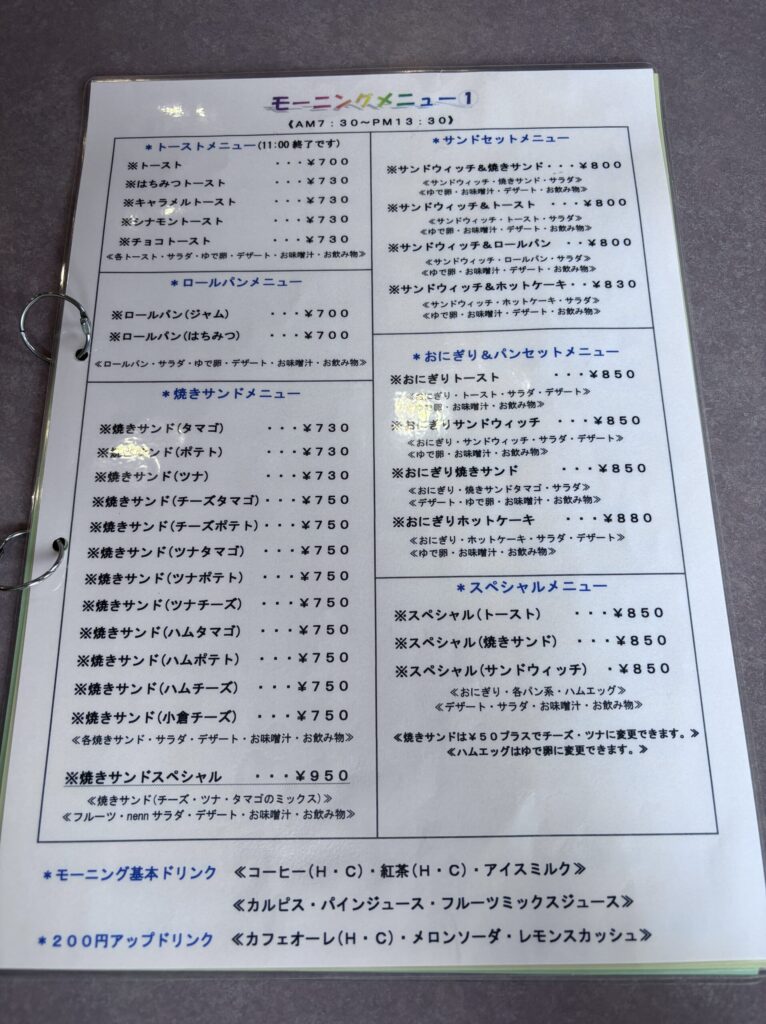 モーニングメニュー①
《AM7:30～PM13:30》
＊トーストメニュー(11:00 終了です)
※トースト ・・・￥700
※はちみつトースト ・・・￥730
※キャラメルトースト ・・・￥730
※シナモントースト ・・・￥730
※チョコトースト ・・・￥730
≪各トースト・サラダ・ゆで卵・デザート・お味噌汁・お飲み物≫
＊ロールパンメニュー
※ロールパン(ジャム) ・・・￥700
※ロールパン(はちみつ) ・・・￥700
≪ロールパン・サラダ・ゆで卵・デザート・お味噌汁・お飲み物≫
＊焼きサンドメニュー
※焼きサンド(タマゴ) ・・・￥730
※焼きサンド(ポテト) ・・・￥730
※焼きサンド(ツナ) ・・・￥730
※焼きサンド(チーズタマゴ)・・・￥750
※焼きサンド(チーズポテト)・・・￥750
※焼きサンド(ツナタマゴ) ・・・￥750
※焼きサンド(ツナポテト) ・・・￥750
※焼きサンド(ツナチーズ) ・・・￥750
※焼きサンド(ハムタマゴ) ・・・￥750
※焼きサンド(ハムポテト) ・・・￥750
※焼きサンド(ハムチーズ) ・・・￥750
※焼きサンド(小倉チーズ) ・・・￥750
≪各焼きサンド・サラダ・デザート・お味噌汁・お飲み物≫
※焼きサンドスペシャル ・・・￥950
≪焼きサンド(チーズ・ツナ・タマゴのミックス)≫
≪フルーツ・nenn サラダ・デザート・お味噌汁・お飲み物≫
＊サンドセットメニュー
※サンドウィッチ＆焼きサンド・・・￥800
≪サンドウィッチ・焼きサンド・サラダ≫
≪ゆで卵・お味噌汁・デザート・お飲み物≫
※サンドウィッチ＆トースト ・・・￥800
≪サンドウィッチ・トースト・サラダ≫
≪ゆで卵・お味噌汁・デザート・お飲み物≫
※サンドウィッチ＆ロールパン ・・￥800
≪サンドウィッチ・ロールパン・サラダ≫
≪ゆで卵・お味噌汁・デザート・お飲み物≫
※サンドウィッチ＆ホットケーキ・・￥830
≪サンドウィッチ・ホットケーキ・サラダ≫
≪ゆで卵・お味噌汁・デザート・お飲み物≫
＊おにぎり＆パンセットメニュー
※おにぎりトースト ・・・￥850
≪おにぎり・トースト・サラダ・デザート≫
≪ゆで卵・お味噌汁・お飲み物≫
※おにぎりサンドウィッチ ・・・￥850
≪おにぎり・サンドウィッチ・サラダ・デザート≫
≪ゆで卵・お味噌汁・お飲み物≫
※おにぎり焼きサンド ・・・￥850
≪おにぎり・焼きサンドタマゴ・サラダ≫
≪デザート・ゆで卵・お味噌汁・お飲み物≫
※おにぎりホットケーキ ・・・￥880
≪おにぎり・ホットケーキ・サラダ・デザート≫
≪ゆで卵・お味噌汁・お飲み物≫
＊スペシャルメニュー
※スペシャル(トースト) ・・・￥850
※スペシャル(焼きサンド) ・・・￥850
※スペシャル(サンドウィッチ) ・￥850
≪おにぎり・各パン系・ハムエッグ≫
≪デザート・サラダ・お味噌汁・お飲み物≫
≪焼きサンドは￥50プラスでチーズ・ツナに変更できます。≫
≪ハムエッグはゆで卵に変更できます。≫
＊モーニング基本ドリンク ≪コーヒー(H・C)・紅茶(H・C)・アイスミルク≫
≪カルピス・パインジュース・フルーツミックスジュース≫
＊200円アップドリンク ≪カフェオーレ(H・C)・メロンソーダ・レモンスカッシュ≫